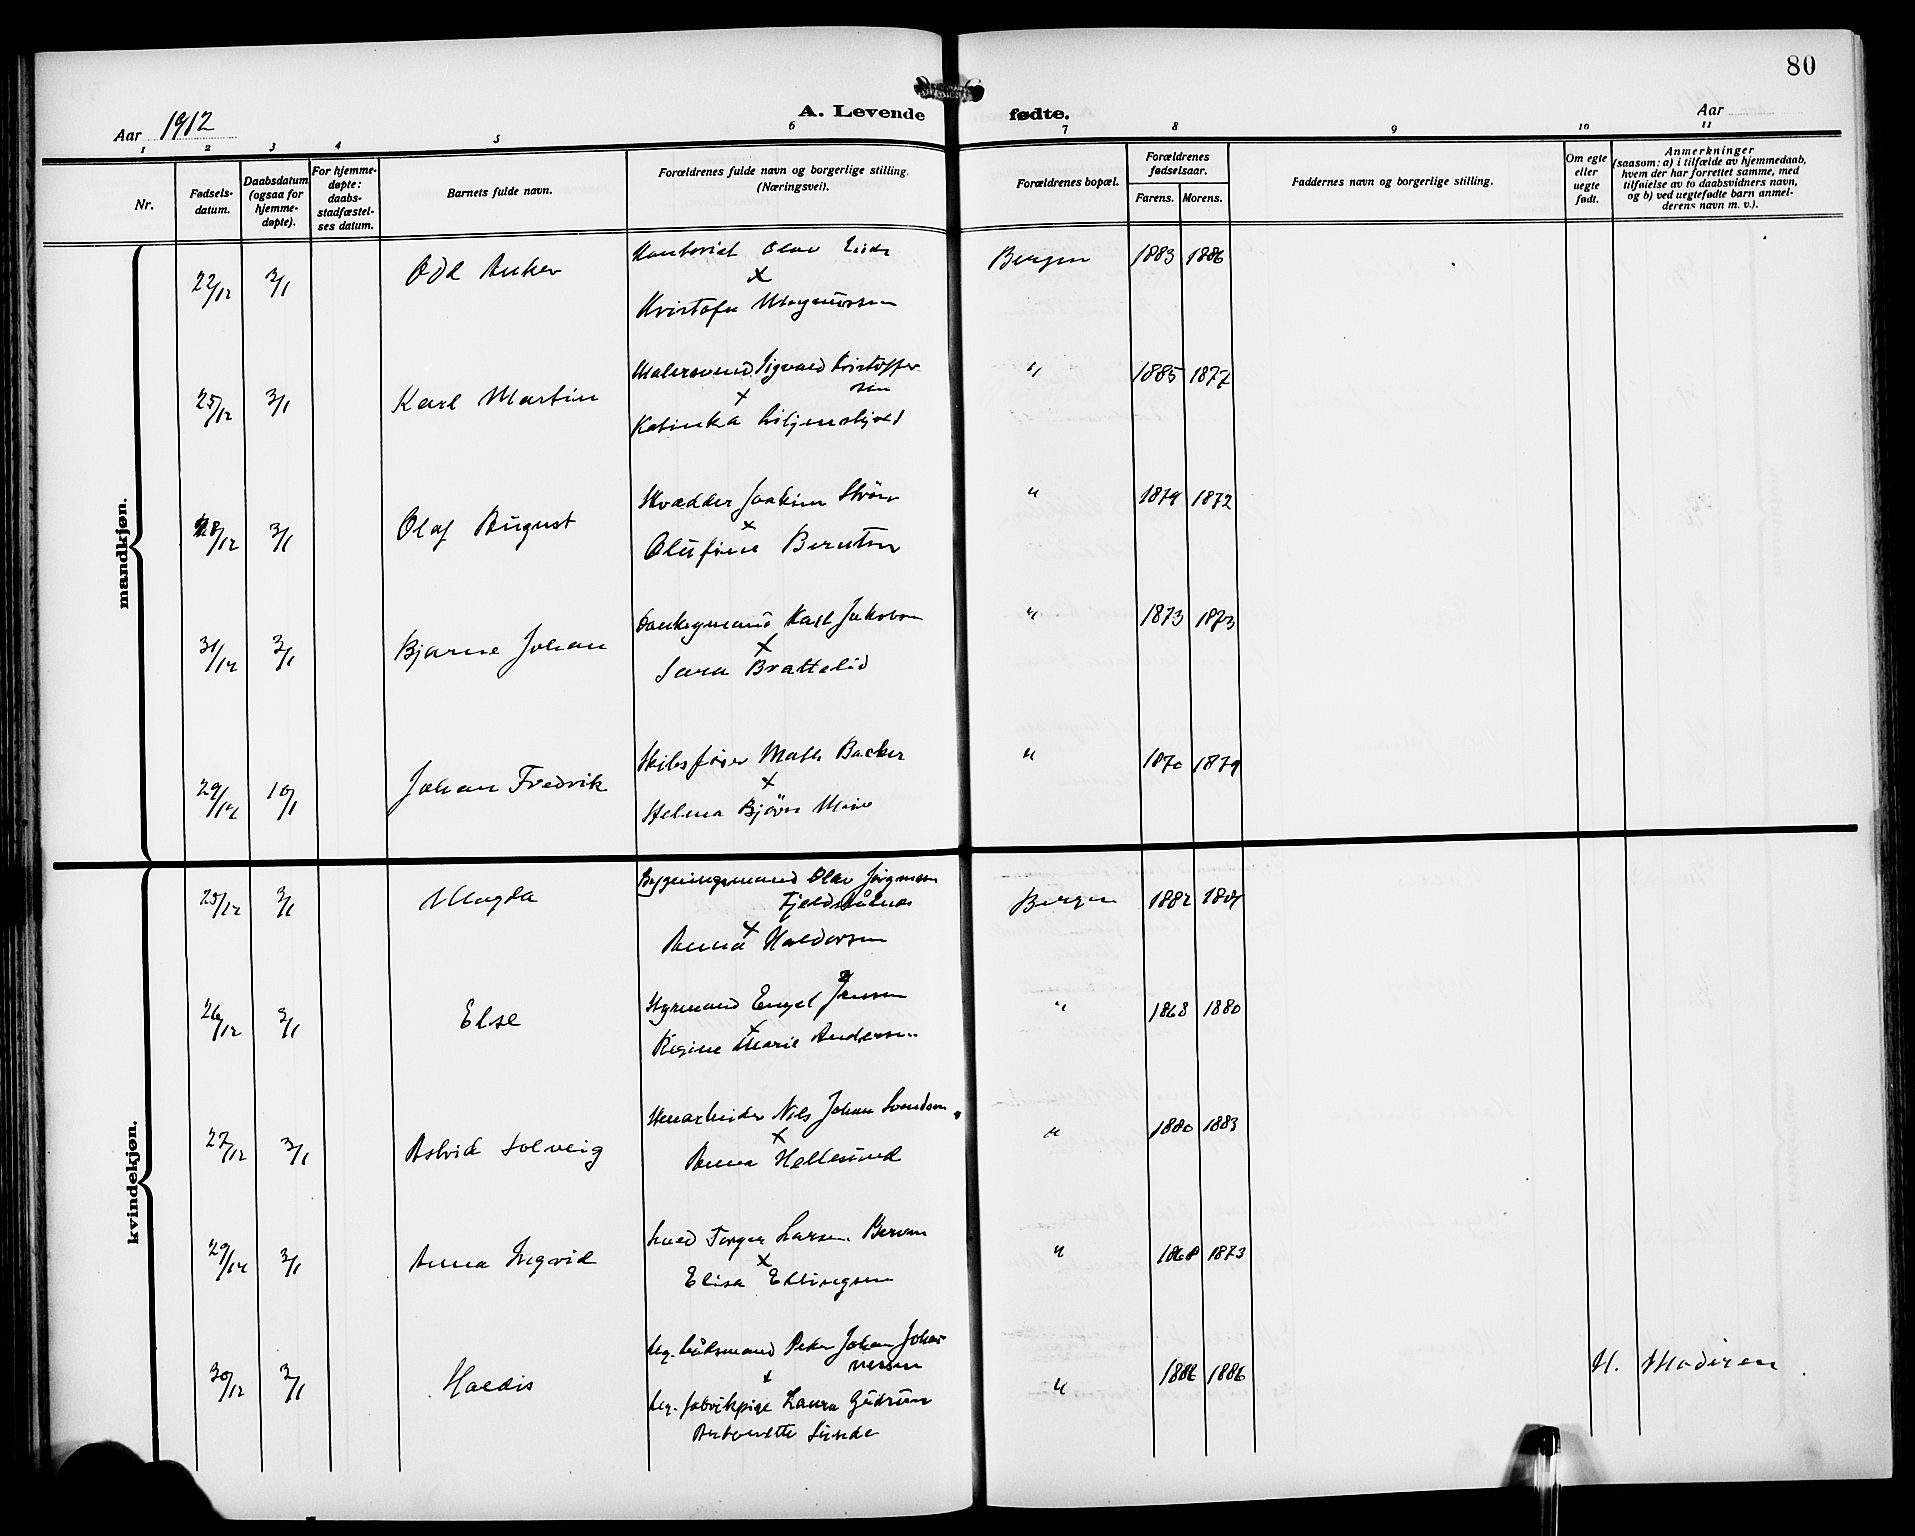 80
A. Levende fødte.
Aar 1912
Aar
1 2 3 4 5 6 7 8 9 10 11
Nr.
Fødsels-
datum.
Daabsdatum
(ogsaa for
hjemme-
døpte).
For hjemme-
døpte:
daabs-
stadfæstel-
ses datum.
Barnets fulde navn.
Forældrenes fulde navn og borgerlige stilling.
(Næringsvei).
Forældrenes bopæl.
Forældrenes
fødselsaar.
Farens. Morens.
Faddernes navn og borgerlige stilling.
Om egte
eller
uegte
født.
Anmerkninger
(saasom: a) i tilfælde av hjemmedaab,
hvem der har forrettet samme, med
tilføielse av to daabsvidners navn,
og b) ved uegtefødte barn anmel-
derens navn m. v.).
mandkjøn.
22/12 3/1 Odd Anker Kontorist Olav Bergen 1883 1886
x
Kristofa Magnussen
25/12 3/1 Karl Martin Malersvend Sigvald Kristoffer " 1885 1877
sen
x
Katinka Liljenskjold
28/12 3/1 Olaf August Skrædder Joakim Strøm " 1879 1872
x
Olufine Berntsen
31/12 3/1 Bjarne Johan Karl Jakobsen " 1873 1873
x
Sara Brattelid
29/12 10/1 Johan Fredrik Skibsfører Math Backer " 1870 1879
x
Helma Bjørn
kvindekjøn.
25/12 3/1 Magda Bygningsmand Olav Jørgensen Bergen 1882
x
Anna Haldorsen
26/12 3/1 Else Styrmand Engel Jensen " 1868 1880
x
Regine Marie Andersen
27/12 3/1 Astrid Solveig Stenarbeider Nils Johan Svendsen " 1880 1883
x
Anna Hellesund
29/12 3/1 Anna Ingrid Torger Larsen " 1868 1873
x
Elisa Ellingsen
30/12 3/1 Haldis Peder Johan Johan " 1886 1886 U. Madsen
nessen
x
ug. fabrikpige Laura Gudrun
Antonette Sunde